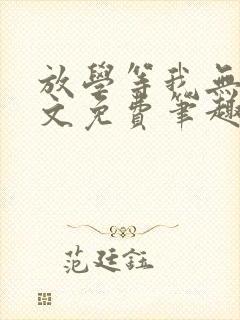 放學等我無
文免費筆趣
范廷鈺